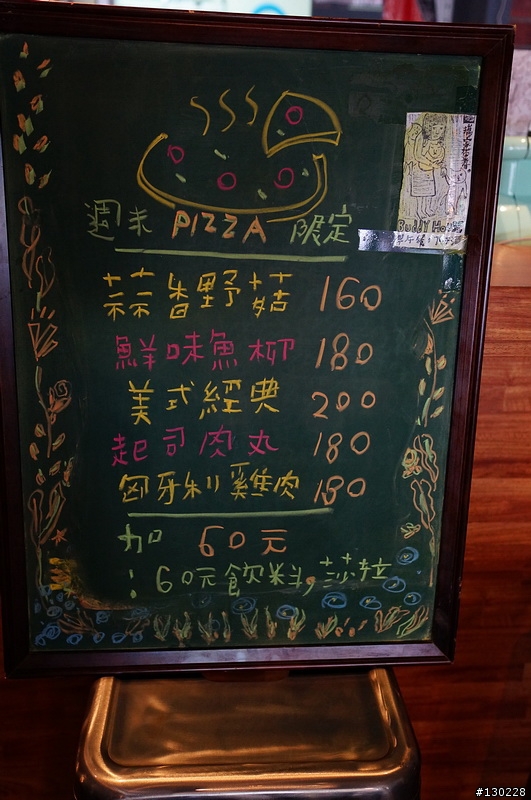 週末 PIZZA 限定
蒜香野菇 160
鮮味魚柳 180
美式經典 200
起司肉丸 180
匈牙利雞肉 180
加 60元
: 60元飲料,莎拉
#130228